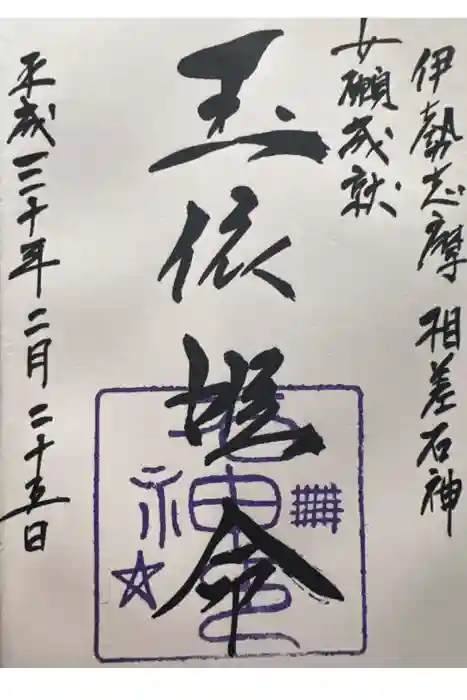 伊勢志摩 相差石神
女願成就
玉依姫命
平成三十年二月二十五日
石神